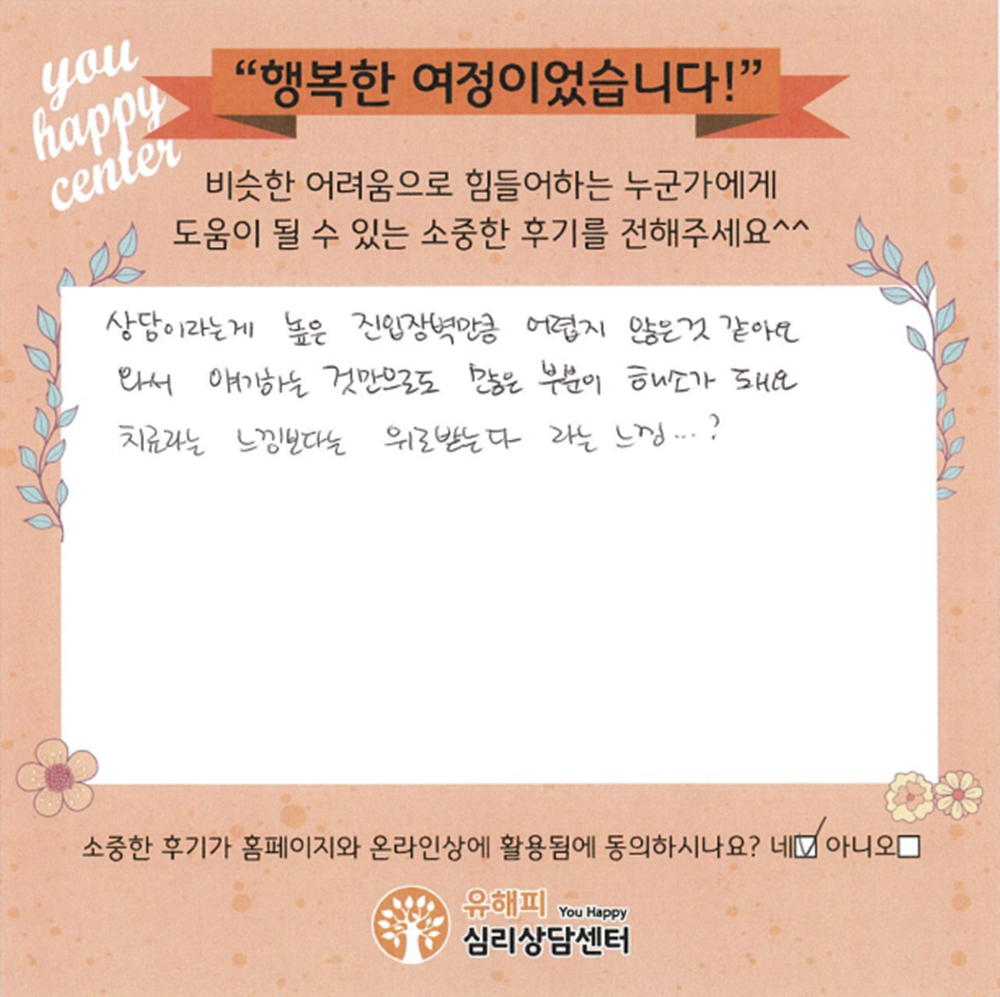 you
happy
center
“행복한 여정이었습니다!”
비슷한 어려움으로 힘들어하는 누군가에게
도움이 될 수 있는 소중한 후기를 전해주세요^^
상담이라는게 높은 진입장벽만큼 어렵지 않은것 같아요
와서 얘기하는 것만으로도 많은 부분이 해소가 돼요
치료라는 느낌보다는 위로받는다 라는 느낌...?
소중한 후기가 홈페이지와 온라인상에 활용됨에 동의하시나요? 네☑ 아니오☐
유해피 You Happy
심리상담센터